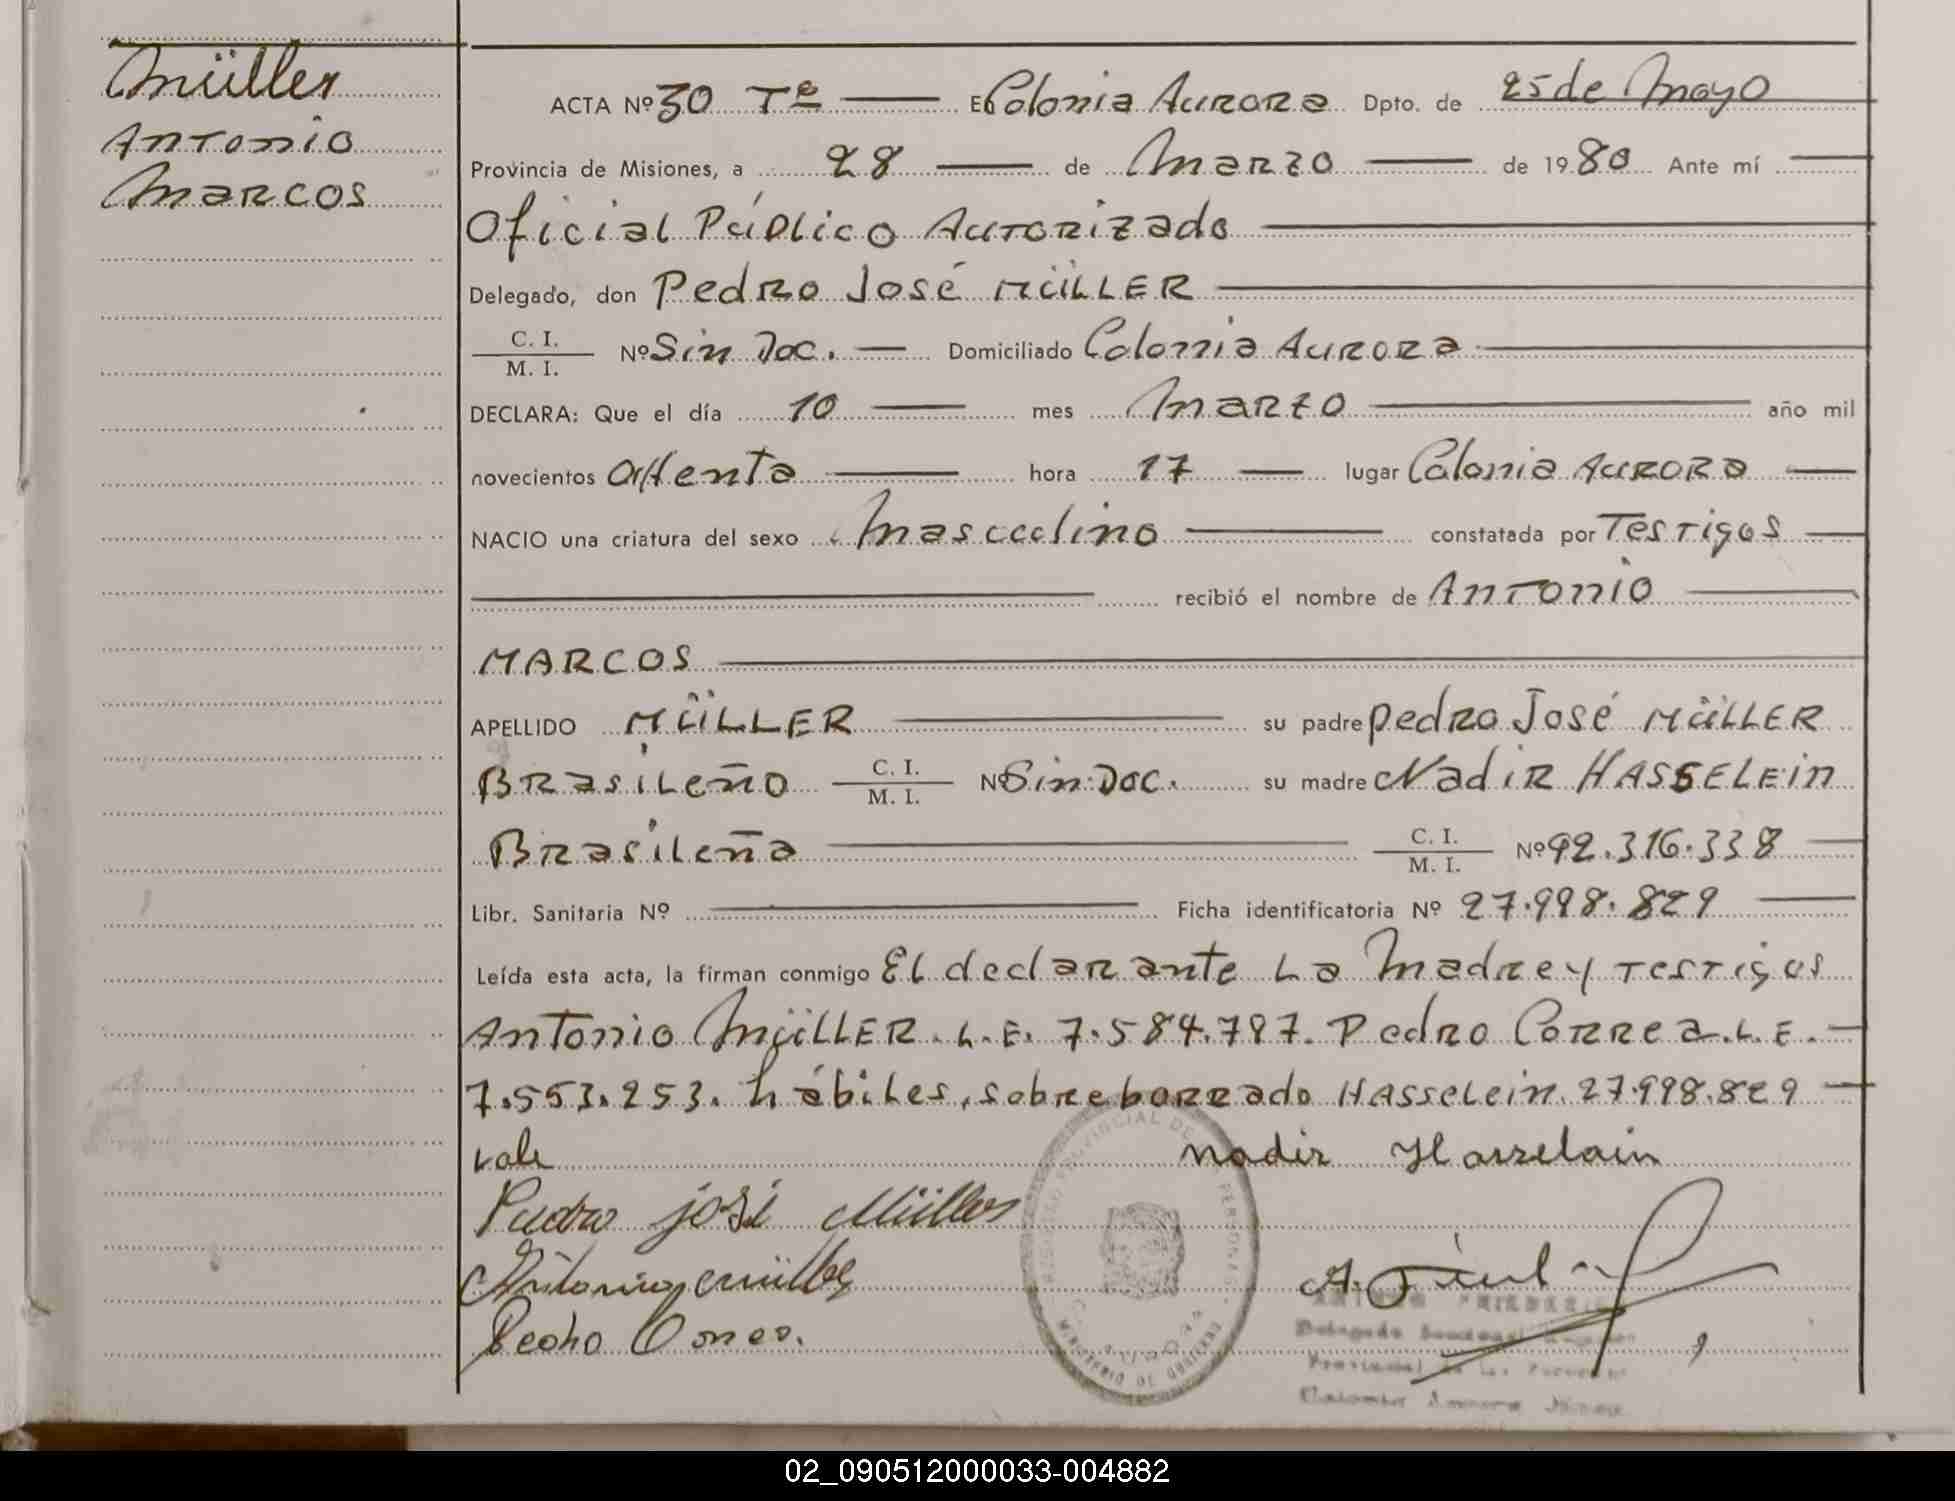 Müller
Antonio
Marcos
ACTA Nº 30 Tº En Colonia Aurora Dpto. de 25 de Mayo
Provincia de Misiones, a 28 de Marzo de 1980 Ante mí
Oficial Público Autorizado
Delegado, don Pedro José MÜLLER
C. I.
M. I. Nº Sin Doc. Domiciliado Colonia Aurora
DECLARA: Que el día 10 mes Marzo año mil
novecientos ochenta hora 17 lugar Colonia Aurora
NACIO una criatura del sexo Masculino constatada por Testigos
recibió el nombre de Antonio
MARCOS
APELLIDO MÜLLER su padre Pedro José MÜLLER
Brasileño C. I.
M. I. Nº Sin Doc. su madre Nadir HASSELEin
Brasileña C. I.
M. I. Nº 92.316.338
Libr. Sanitaria Nº Ficha identificatoria Nº 27.998.829
Leída esta acta, la firman conmigo El declarante La Madre y testigos
Antonio MÜLLER. L.E. 7.584.787. Pedro Correa. L.E.
7.553.253. hábiles, sobreborrado HASSELein. 27.998.829
vale nadir Hasselain
Pedro josé Müller
Antonio Müller
Pedro Correa.
REGISTRO PROVINCIAL DE LAS PERSONAS
Colonia Aurora
02_090512000033-004882